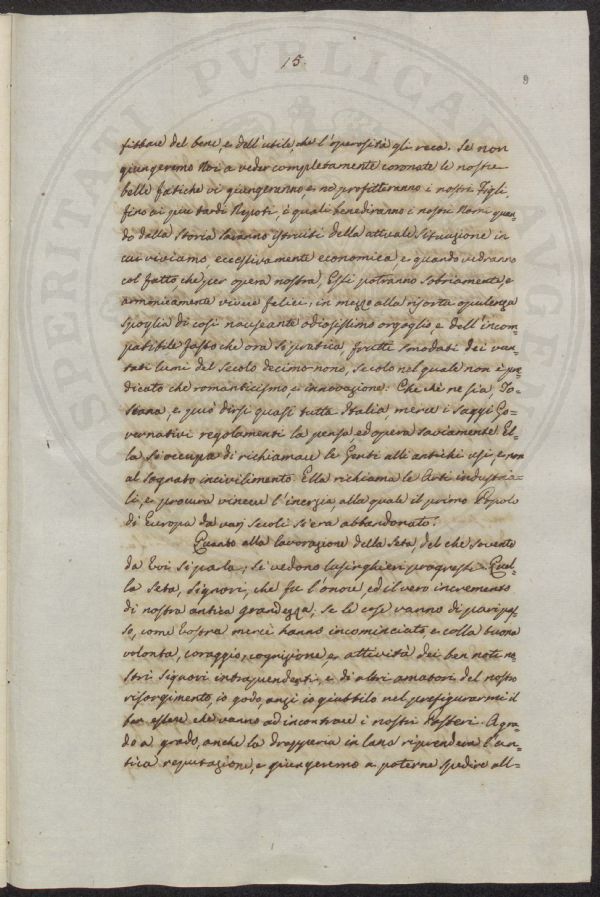 15.
9
fittare del bene, e dell'utile, che l'operosità gli reca. Se non
giungeremo Noi a veder completamente coronate le nostre
belle fatiche vi giungeranno, e ne profitteranno i nostri Figli,
fino ai più tardi Nepoti, i quali benediranno i nostri Nomi quan=
do dalla Storia saranno istruiti della attuale situazione in
cui viviamo eccessivamente economica, e quando vedranno
col fatto che per opera nostra, Essi potranno sobriamente, e
armonicamente vivere felici, in mezzo alla risorta opulenza
spoglia di così nauseante odiosissimo orgoglio, e dell'incom=
patibile fasto che ora si pratica, frutti smodati dei van=
tati lumi del Secolo decimo nono, secolo nel quale non è pre
dicato che romanticismo, e innovazione. Che che ne sia, To=
scana, e può dirsi quasi tutta Italia, mercè i saggi Go=
vernativi regolamenti la pensa, ed opera saviamente. El=
la si occupa di richiamare le Genti alli antichi usi, e non
al sognato incivilimento. Ella richiama le Arti industria=
li, e procura vincere l'inerzia, alla quale il primo Popolo
di Europa da varj secoli si era abbandonato.
Quanto alla lavorazione della Seta, del che sovente
da Voi si parla, si vedono lusinghieri progressi. Quel=
la Seta, Signori, che fu l'onore, ed il vero incremento
di nostra antica grandezza. Se le cose vanno di pari pas=
so, come Vostra mercè hanno incominciato, e colla buona
volontà, coraggio, cognizione e attività dei ben noti no
stri Signori intraprendenti, e di altri amatori del nostro
risorgimento, io godo, anzi io giubbilo nel prefigurarmi il
ben essere che vanno ad incontrare i nostri Posteri. A gra=
do a grado, anche la drapperia in lana riprenderà l'an=
tica reputazione, e giungeremo a poterne spedire all=
SPERITATI PVBLICAE AVGENDAE